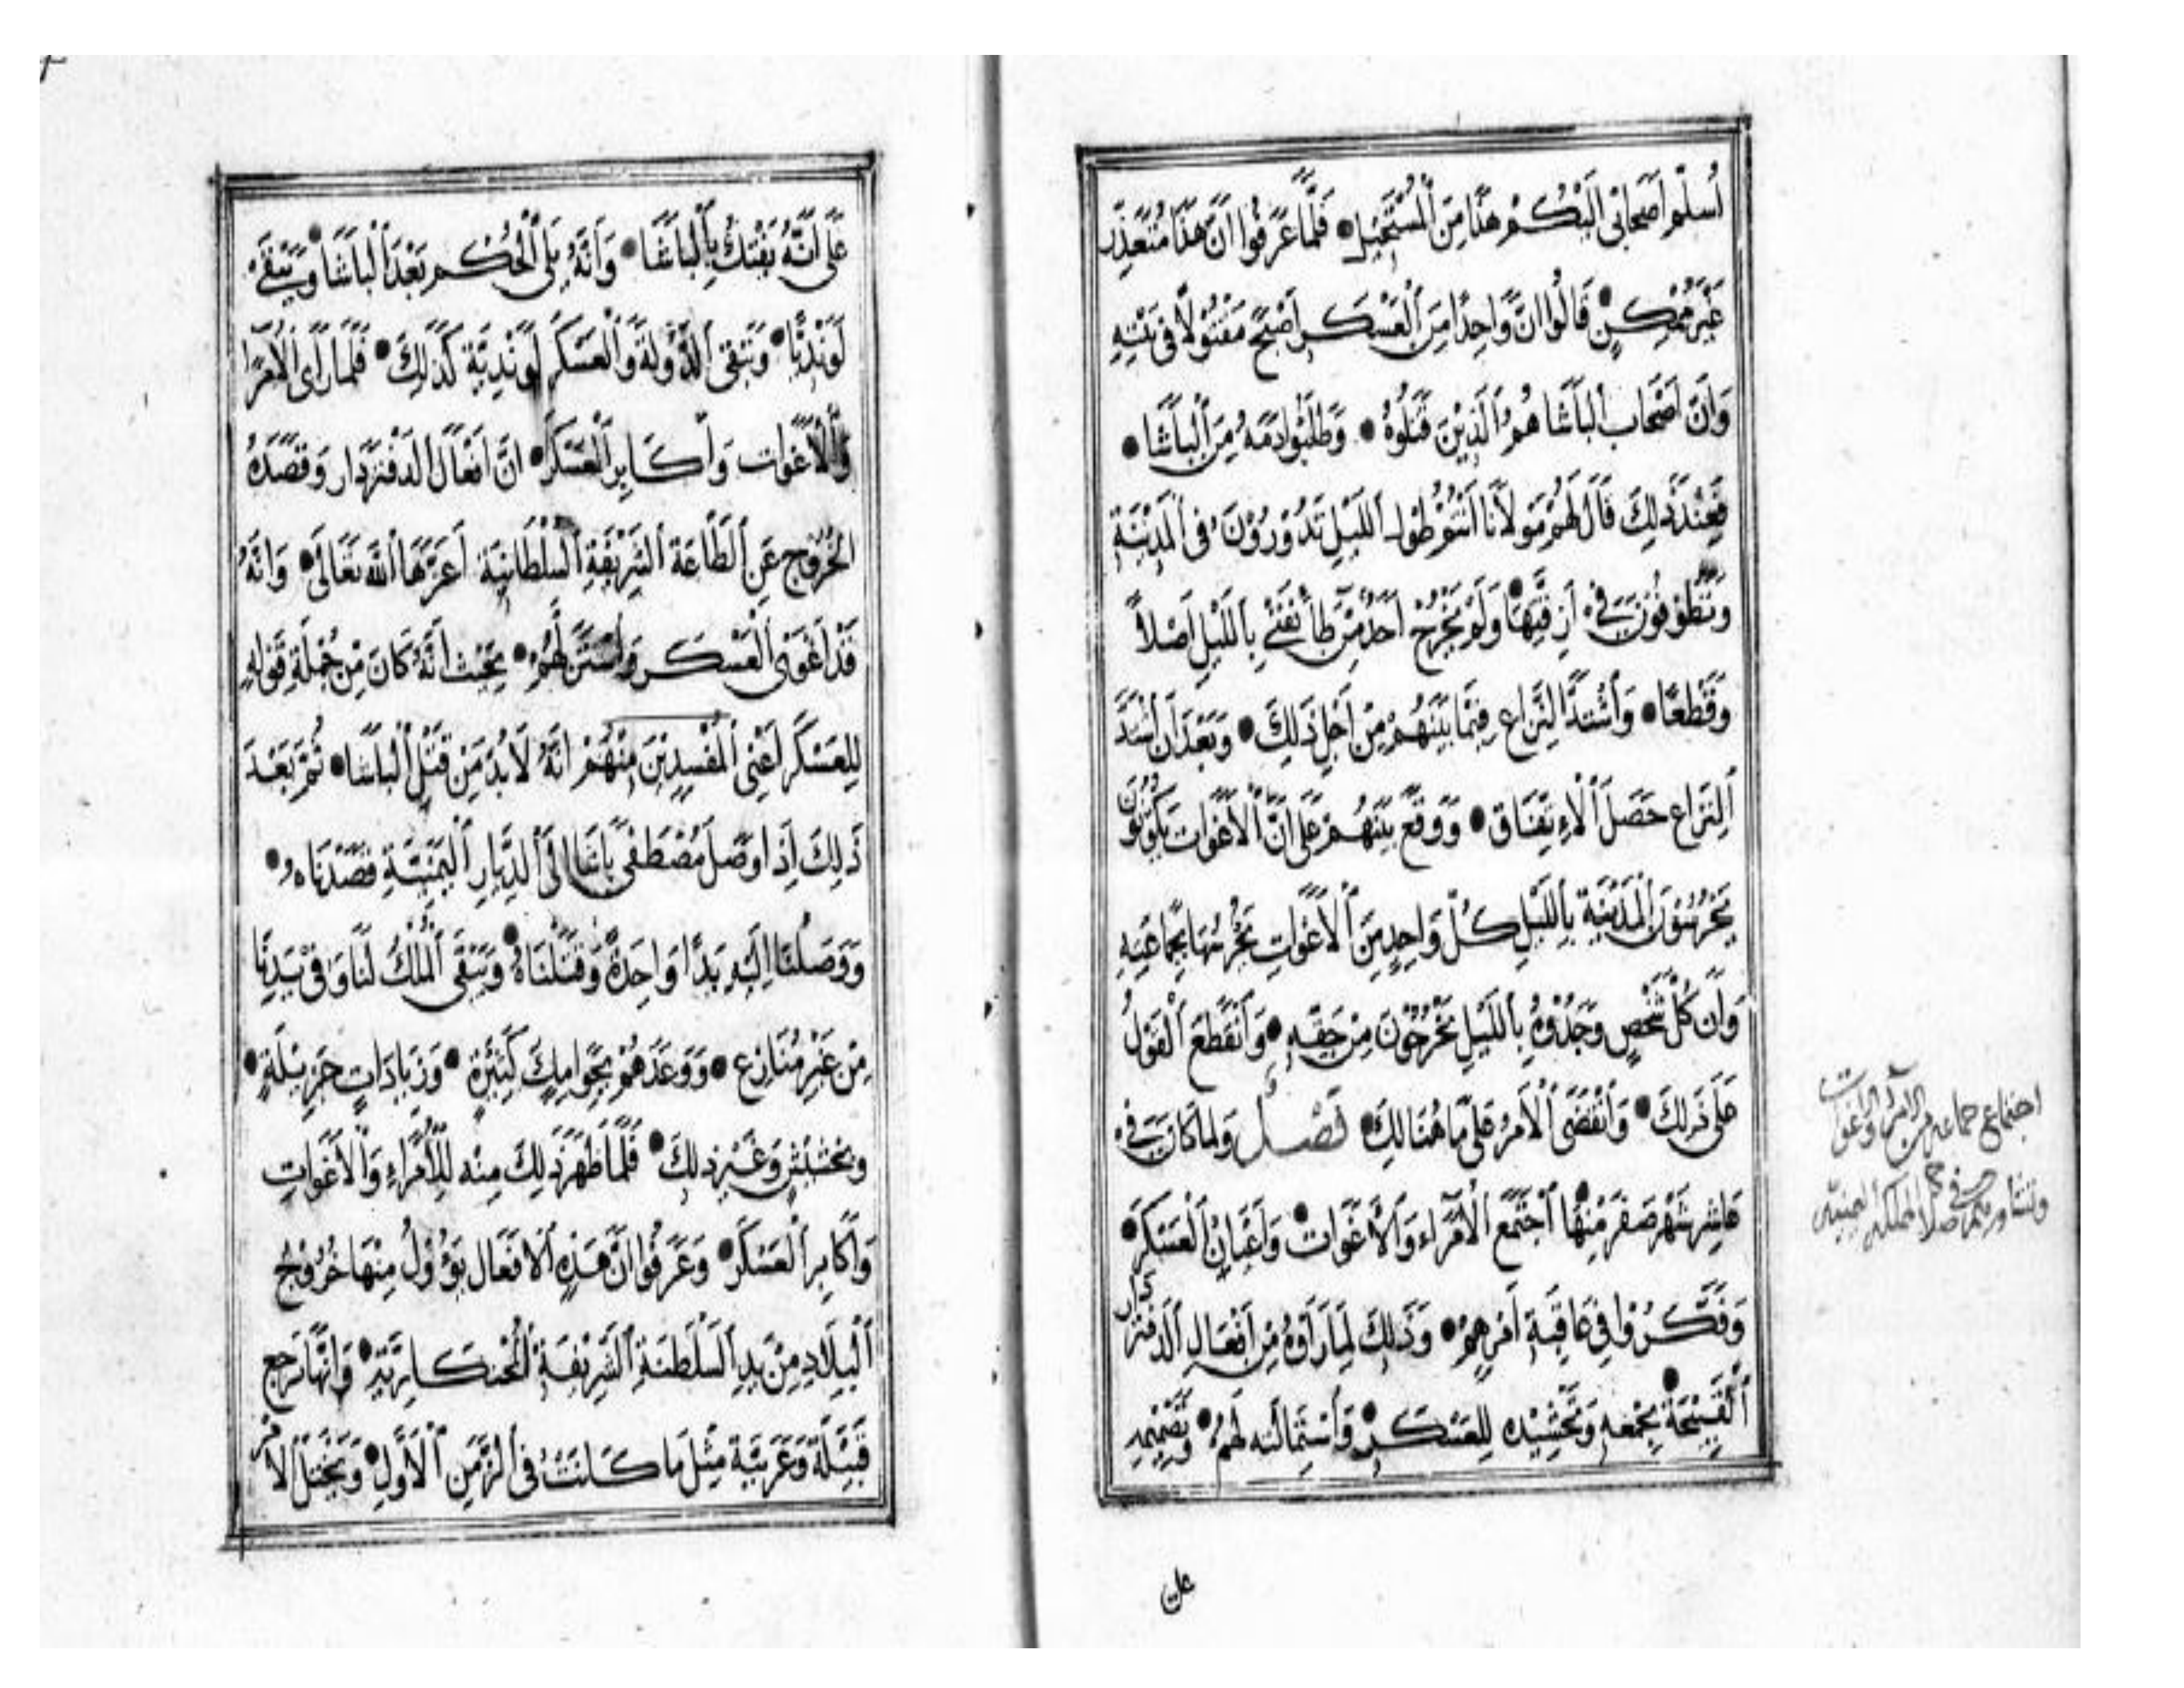 أسلم أصحابي اليكم هذا من المستحيل • فلما عرفوا ان هذا متعذر
غير ممكن • قالوا ان واحدا من العسكر اصبح مقتولا في بيته
وان اصحاب الباشا هم الذين قتلوه • وطلبوا دمه من الباشا •
فعند ذلك قال لهم مولانا انتو طول الليل تدورون في المدينة
وتطوفون في ازقتها • ولو يخرج احد من طائفتي بالليل اصلا
وقطعا • واشتد النزاع فيما بينهم من اجل ذلك • وبعد ان اشتد
النزاع حصل الاتفاق • ووقع بينهم على ان الاغوات يكونون
يحرسون المدينة بالليل كل واحد من الاغوات يحرسها بجماعته
وان كل شخص وجدوه بالليل يخرجون من حقه • وانقطع القول
على ذلك • وانقضى الامر على ما هنالك • فصل ولما كان في
عاشر شهر صفر منها • اجتمع الامراء والاغوات • واعيان العسكر •
وفكروا في عاقبة امرهم • وذلك لما رأوه من افعال الدفتردار
القبيحة • بجمعه وتحشيده للعسكر • واستمالته لهم • وتصميمه
على
اجتماع جماعه من الامراء والاغوات
وتشاورهم في صلاح المملكه اليمنيه
على انه يفتك بالباشا • وانه يلي الحكم بعد الباشا • ويبقى
لونديا • وتبقى الدولة والعسكر لوندية كذلك • فلما رأى الامرا
والاغوات واكابر العسكر • ان افعال الدفتردار وقصده
الخروج عن الطاعة الشريفة السلطانية اعزها الله تعالى • وانه
قد اغوى العسكر واستن لهم • بحيث انه كان من جملة قوله
للعسكر اعني المفسدين منهم انه لا بد من قتل الباشا • ثم بعد
ذلك اذا وصل مصطفى باشا الى الديار اليمنية قصدناه •
ووصلنا اليه يدا واحدة وقتلناه • ويبقى الملك لنا وفي يدنا
من غير منازع • ووعدهم بجوامك كثيرة • وزيادات جزيلة •
وبخشيش وغير ذلك • فلما ظهر ذلك منه للأمراء والاغوات
واكابر العسكر • وعرفوا ان هذه الافعال يؤول منها خروج
البلاد من يد السلطنة الشريفة الخنكارية • وانها ترجع
قبيلة وعربية مثل ما كانت في الزمن الاول • ويختل الامر